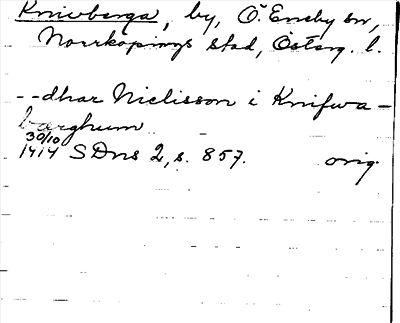 Knivberga, by, Ö. Eneby sn,
Norrköpings stad, Österg. l.
--dhar Niclisson i Knifwa-
barghum
30/10
1414 SDns 2, s. 857. orig.